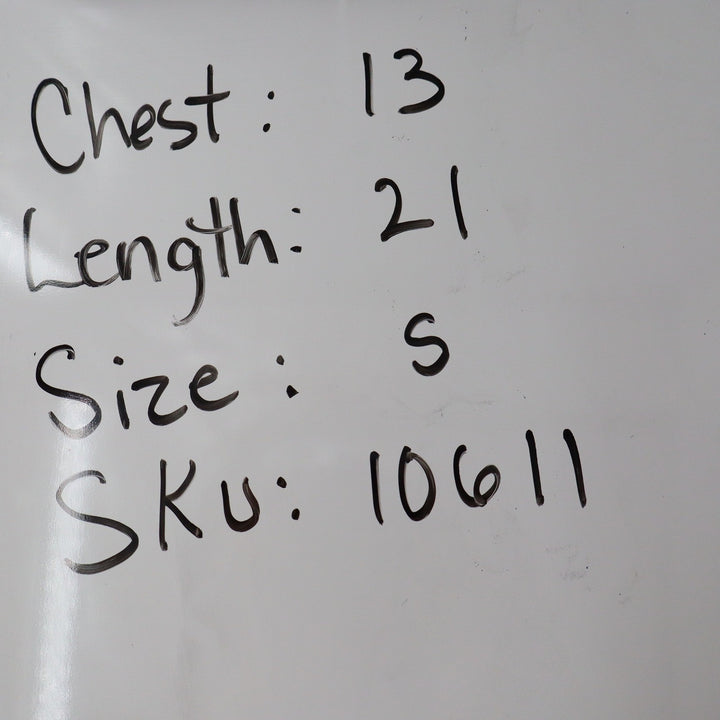 Chest: 13
Length: 21
Size: S
SKU: 10611